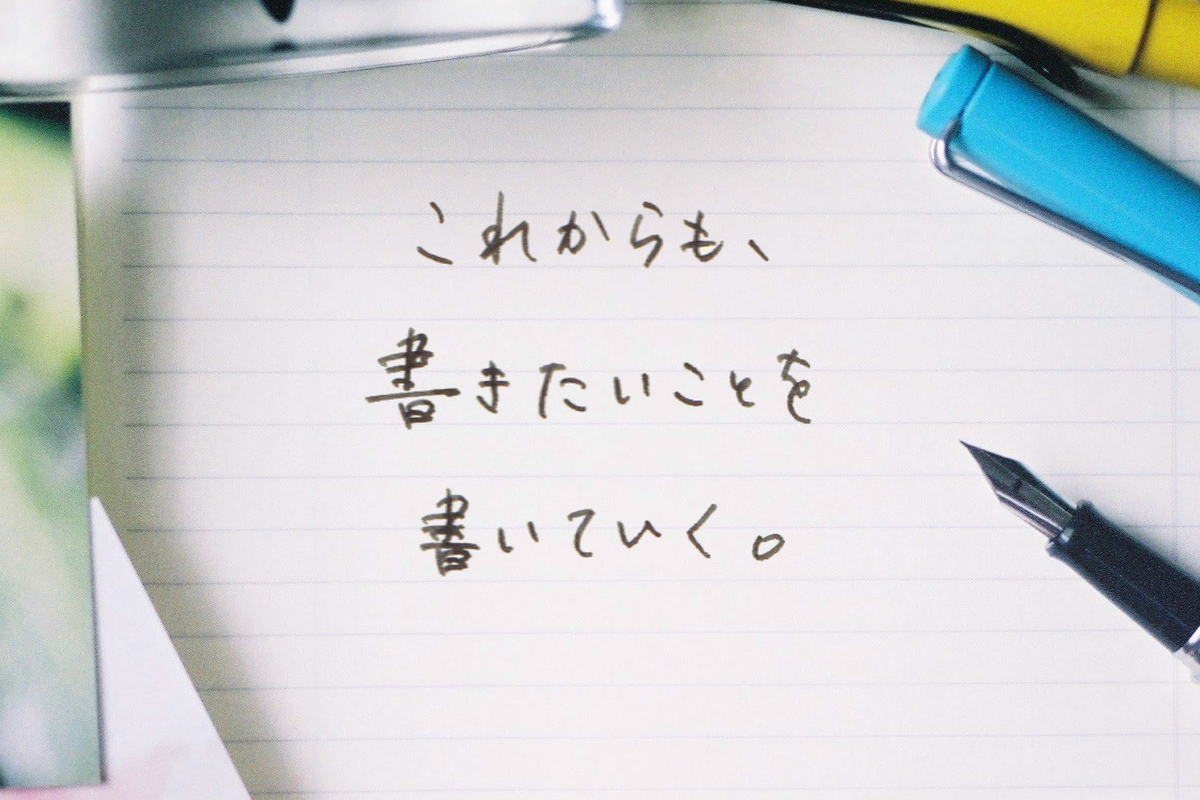 これからも、
書きたいことを
書いていく。